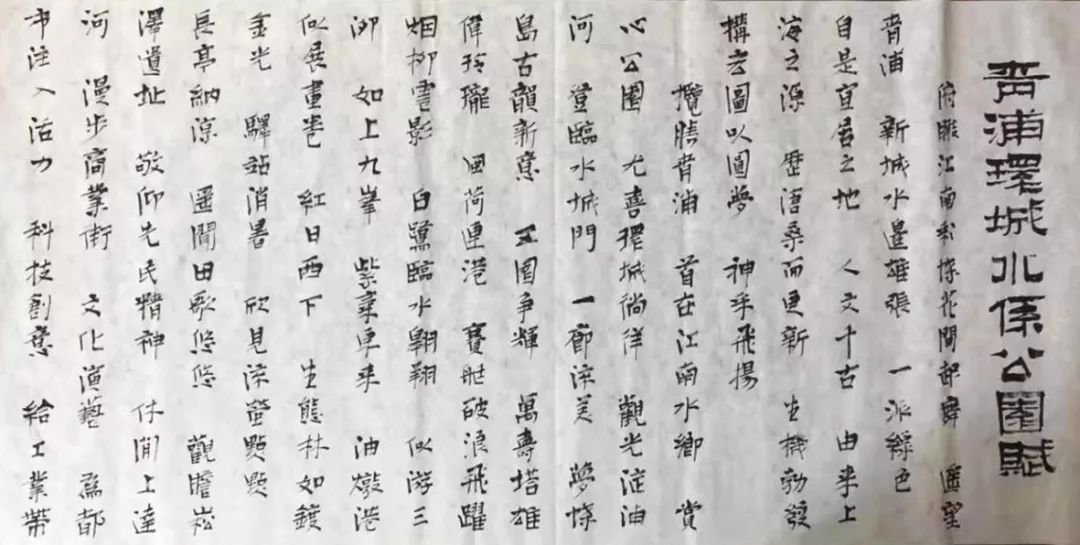 青浦環城水系公園賦
俯瞰江南彩蝶花間起舞 遥望
青浦 新城水邊雄張 一派綠色
自是宜居之地 人文千古 由来上
海之源 歷滄桑而更新 生機勃發
構宏圖以圖夢 神乎飛揚
攬勝青浦 首在江南水鄉 賞
心公園 尤喜環城徜徉 觀光淀浦
河 登臨水城門 一廊淙美 夢蝶
島古韻新意 五園争輝 萬壽塔雄
偉玲瓏 風荷連港 賽艇破浪飛躍
烟柳雲影 白鷺臨水翱翔 似游三
泖 如上九峯 紫氣東来 油墩港
似展畫卷 紅日西下 生態林如鍍
金光 驛站消暑 欣見流螢點點
長亭納凉 遥聞田歌悠悠 觀瞻崧
澤遺址 敬仰先民精神 休閒上達
河 漫步商業街 文化演藝 爲都
市注入活力 科技創意 給工業帶